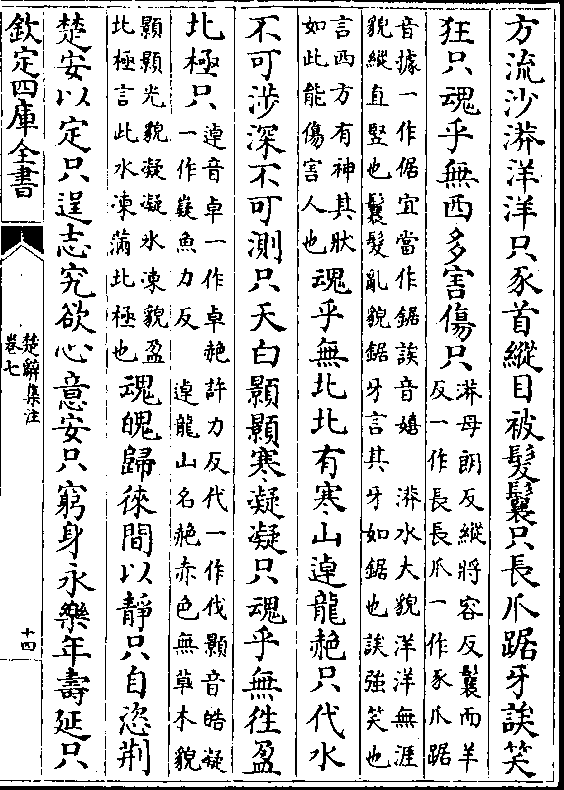 方流沙漭洋洋只豕首縱目被髮鬤只長爪踞牙誒笑
狂只魂乎無西多害傷只
漭母朗反縱將容反鬤而羊
反一作長長爪一作豕爪踞
音據一作倨宜當作鋸誒音嬉 漭水大貌洋洋無涯
貌縱直竪也鬤髮亂貌鋸牙言其牙如鋸也誒强笑也
言西方有神其狀
如此能傷害人也
魂乎無北北有寒山逴龍赩只代水
不可涉深不可測只天白顥顥寒凝凝只魂乎無徃盈
北極只
逴音卓一作卓赩許力反代一作伐顥音皓凝
一作嶷魚力反 逴龍山名赩赤色無草木貌
顥顥光貌凝凝氷凍貌盈
北極言此水凍滿北極也
魂魄歸徠間以靜只自恣荆
楚安以定只逞志究欲心意安只窮身永樂年壽延只
欽定四庫全書
楚辭集注
卷七
十四